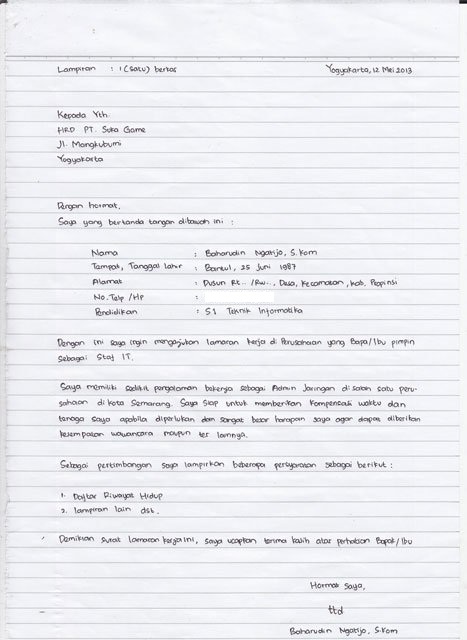 Lampiran : 1 (satu) berkas
Yogyakarta, 12 Mei 2013
Kepada Yth.
HRD PT. Suka Game
Jl. Mangkubumi
Yogyakarta
Dengan hormat,
Saya yang bertanda tangan dibawah ini :
Nama : Baharudin Ngatijo, S.Kom
Tempat, Tanggal Lahir : Bantul, 25 Juni 1987
Alamat : Dusun Rt.. /Rw.., Desa, Kecamatan, Kab, Propinsi
No. Telp /HP :
Pendidikan : S1 Teknik Informatika
Dengan ini saya ingin mengajukan lamaran kerja di Perusahaan yang Bapa/Ibu pimpin
sebagai Staf IT.
Saya memiliki sedikit pengalaman bekerja sebagai Admin Jaringan di salah satu peru-
sahaan di kota Semarang. Saya siap untuk memberikan kompensasi waktu dan
tenaga saya apabila diperlukan dan sangat besar harapan saya agar dapat diberikan
kesempatan wawancara maupun tes lainnya.
Sebagai pertimbangan saya lampirkan beberapa persyaratan sebagai berikut :
1. Daftar Riwayat Hidup
2. lampiran lain dst.
Demikian surat lamaran kerja ini, saya ucapkan terima kasih atas perhatian Bapak/Ibu
Hormat saya,
ttd
Baharudin Ngatijo, S.Kom